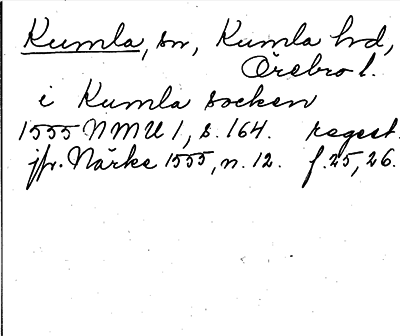 Kumla, sn, Kumla hrd,
Örebro l.
i Kumla socken
1555 NMU 1, s. 164. regest.
jfr. Närke 1555, n. 12. f. 25, 26.